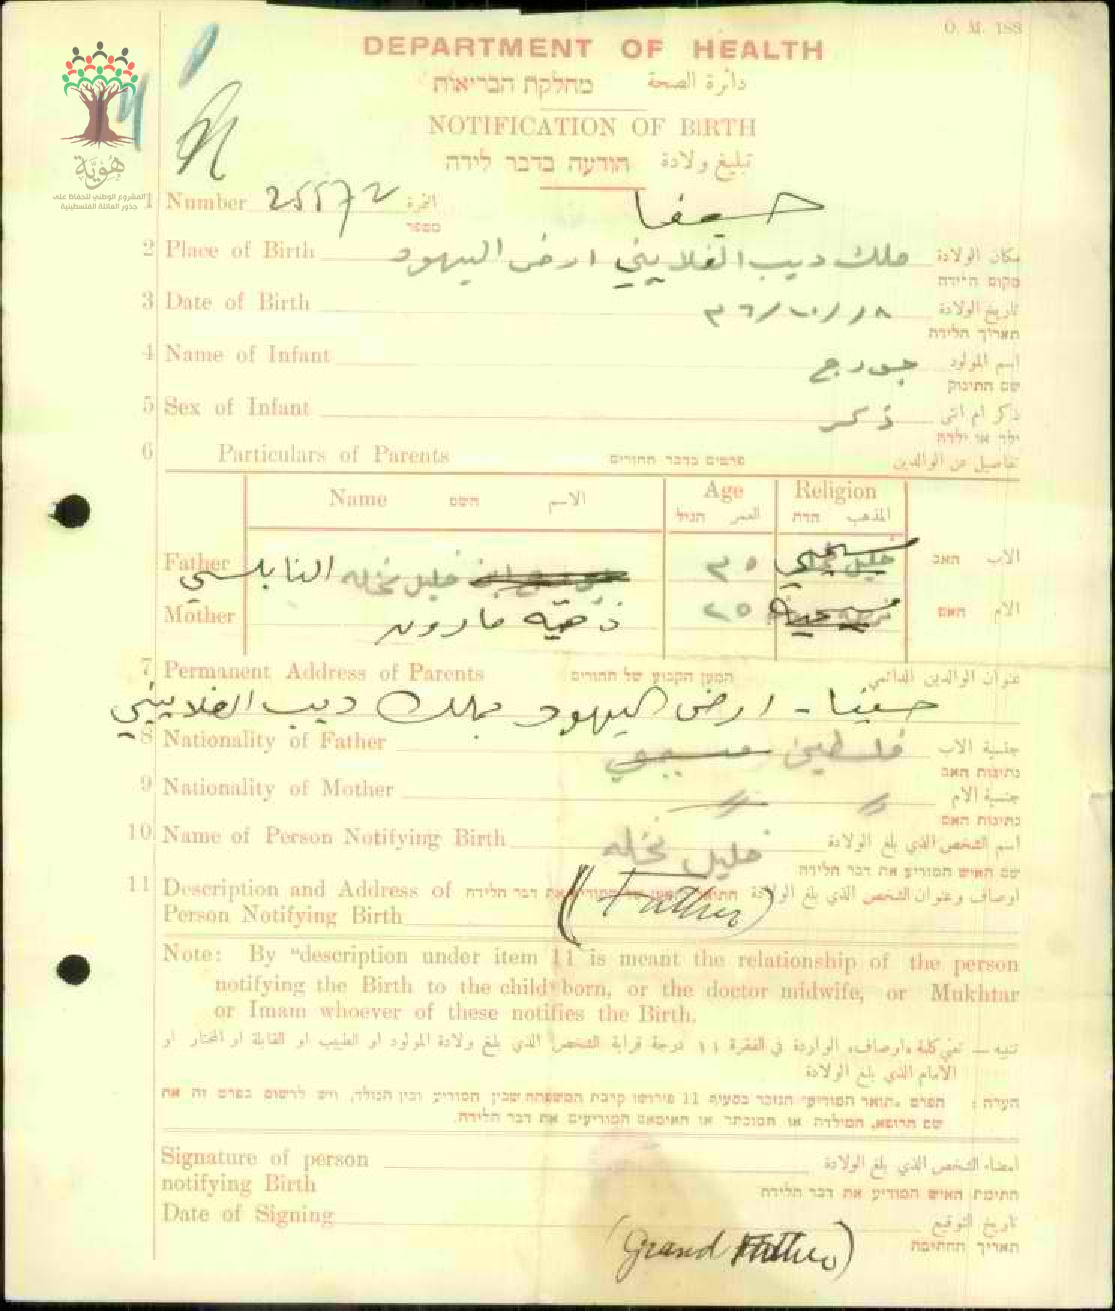 O. M. 188
DEPARTMENT OF HEALTH
מחלקת הבריאות دائرة الصحة
NOTIFICATION OF BIRTH
הודעה בדבר לידה تبليغ ولادة
هُوِيَّة
المشروع الوطني للحفاظ على
جذور العائلة الفلسطينية
حيفا
1 Number 25572 النمرة
מספר
2 Place of Birth ملك ديب الفلاييني ارض اليهود مكان الولادة
מקום הלידה
3 Date of Birth ١٨/١٠/٣٦ تاريخ الولادة
תאריך הלידה
4 Name of Infant جورج اسم المولود
שם התינוק
5 Sex of Infant ذكر ذكر ام انثى
ילד או ילדה
6 Particulars of Parents פרטים בדבר ההורים تفاصيل عن الوالدين
Name השם الاسم Age Religion
הגיל العمر הדת المذهب
Father خليل نخله النابلسي ٣٥ مسيحي האב الاب
Mother مارون ٢٥ مسيحية האם الام
7 Permanent Address of Parents המען הקבוע של ההורים عنوان الوالدين الدائمي
حيفا - ارض اليهود بملك ديب الفلاييني
8 Nationality of Father فلسطيني مسيحي جنسية الاب
נתינות האב
9 Nationality of Mother 〃 〃 جنسية الام
נתינות האם
10 Name of Person Notifying Birth خليل نخله اسم الشخص الذي بلغ الولادة
שם האיש המודיע את דבר הלידה
11 Description and Address of את דבר הלידה اوصاف وعنوان الشخص الذي بلغ الولادة
Person Notifying Birth (Father)
Note: By "description under item 11 is meant the relationship of the person
notifying the Birth to the child born, or the doctor midwife, or Mukhtar
or Imam whoever of these notifies the Birth.
تنبيه — تعني كلمة «اوصاف» الواردة في الفقرة ١١ درجة قرابة الشخص الذي بلغ ولادة المولود او الطبيب او القابلة او المختار او
الامام الذي بلغ الولادة
הערה: הפרט „תואר המודיע״ הנזכר בסעיף 11 פירושו קירבת המשפחה שבין המודיע ובין הנולד, ויש לרשום בפרט זה את
שם הרופא, המילדת או המוכתר או האימאם המודיעים את דבר הלידה.
Signature of person امضاء الشخص الذي بلغ الولادة
notifying Birth חתימת האיש המודיע את דבר הלידה
Date of Signing تاريخ التوقيع
תאריך החתימה
(Grand Father)